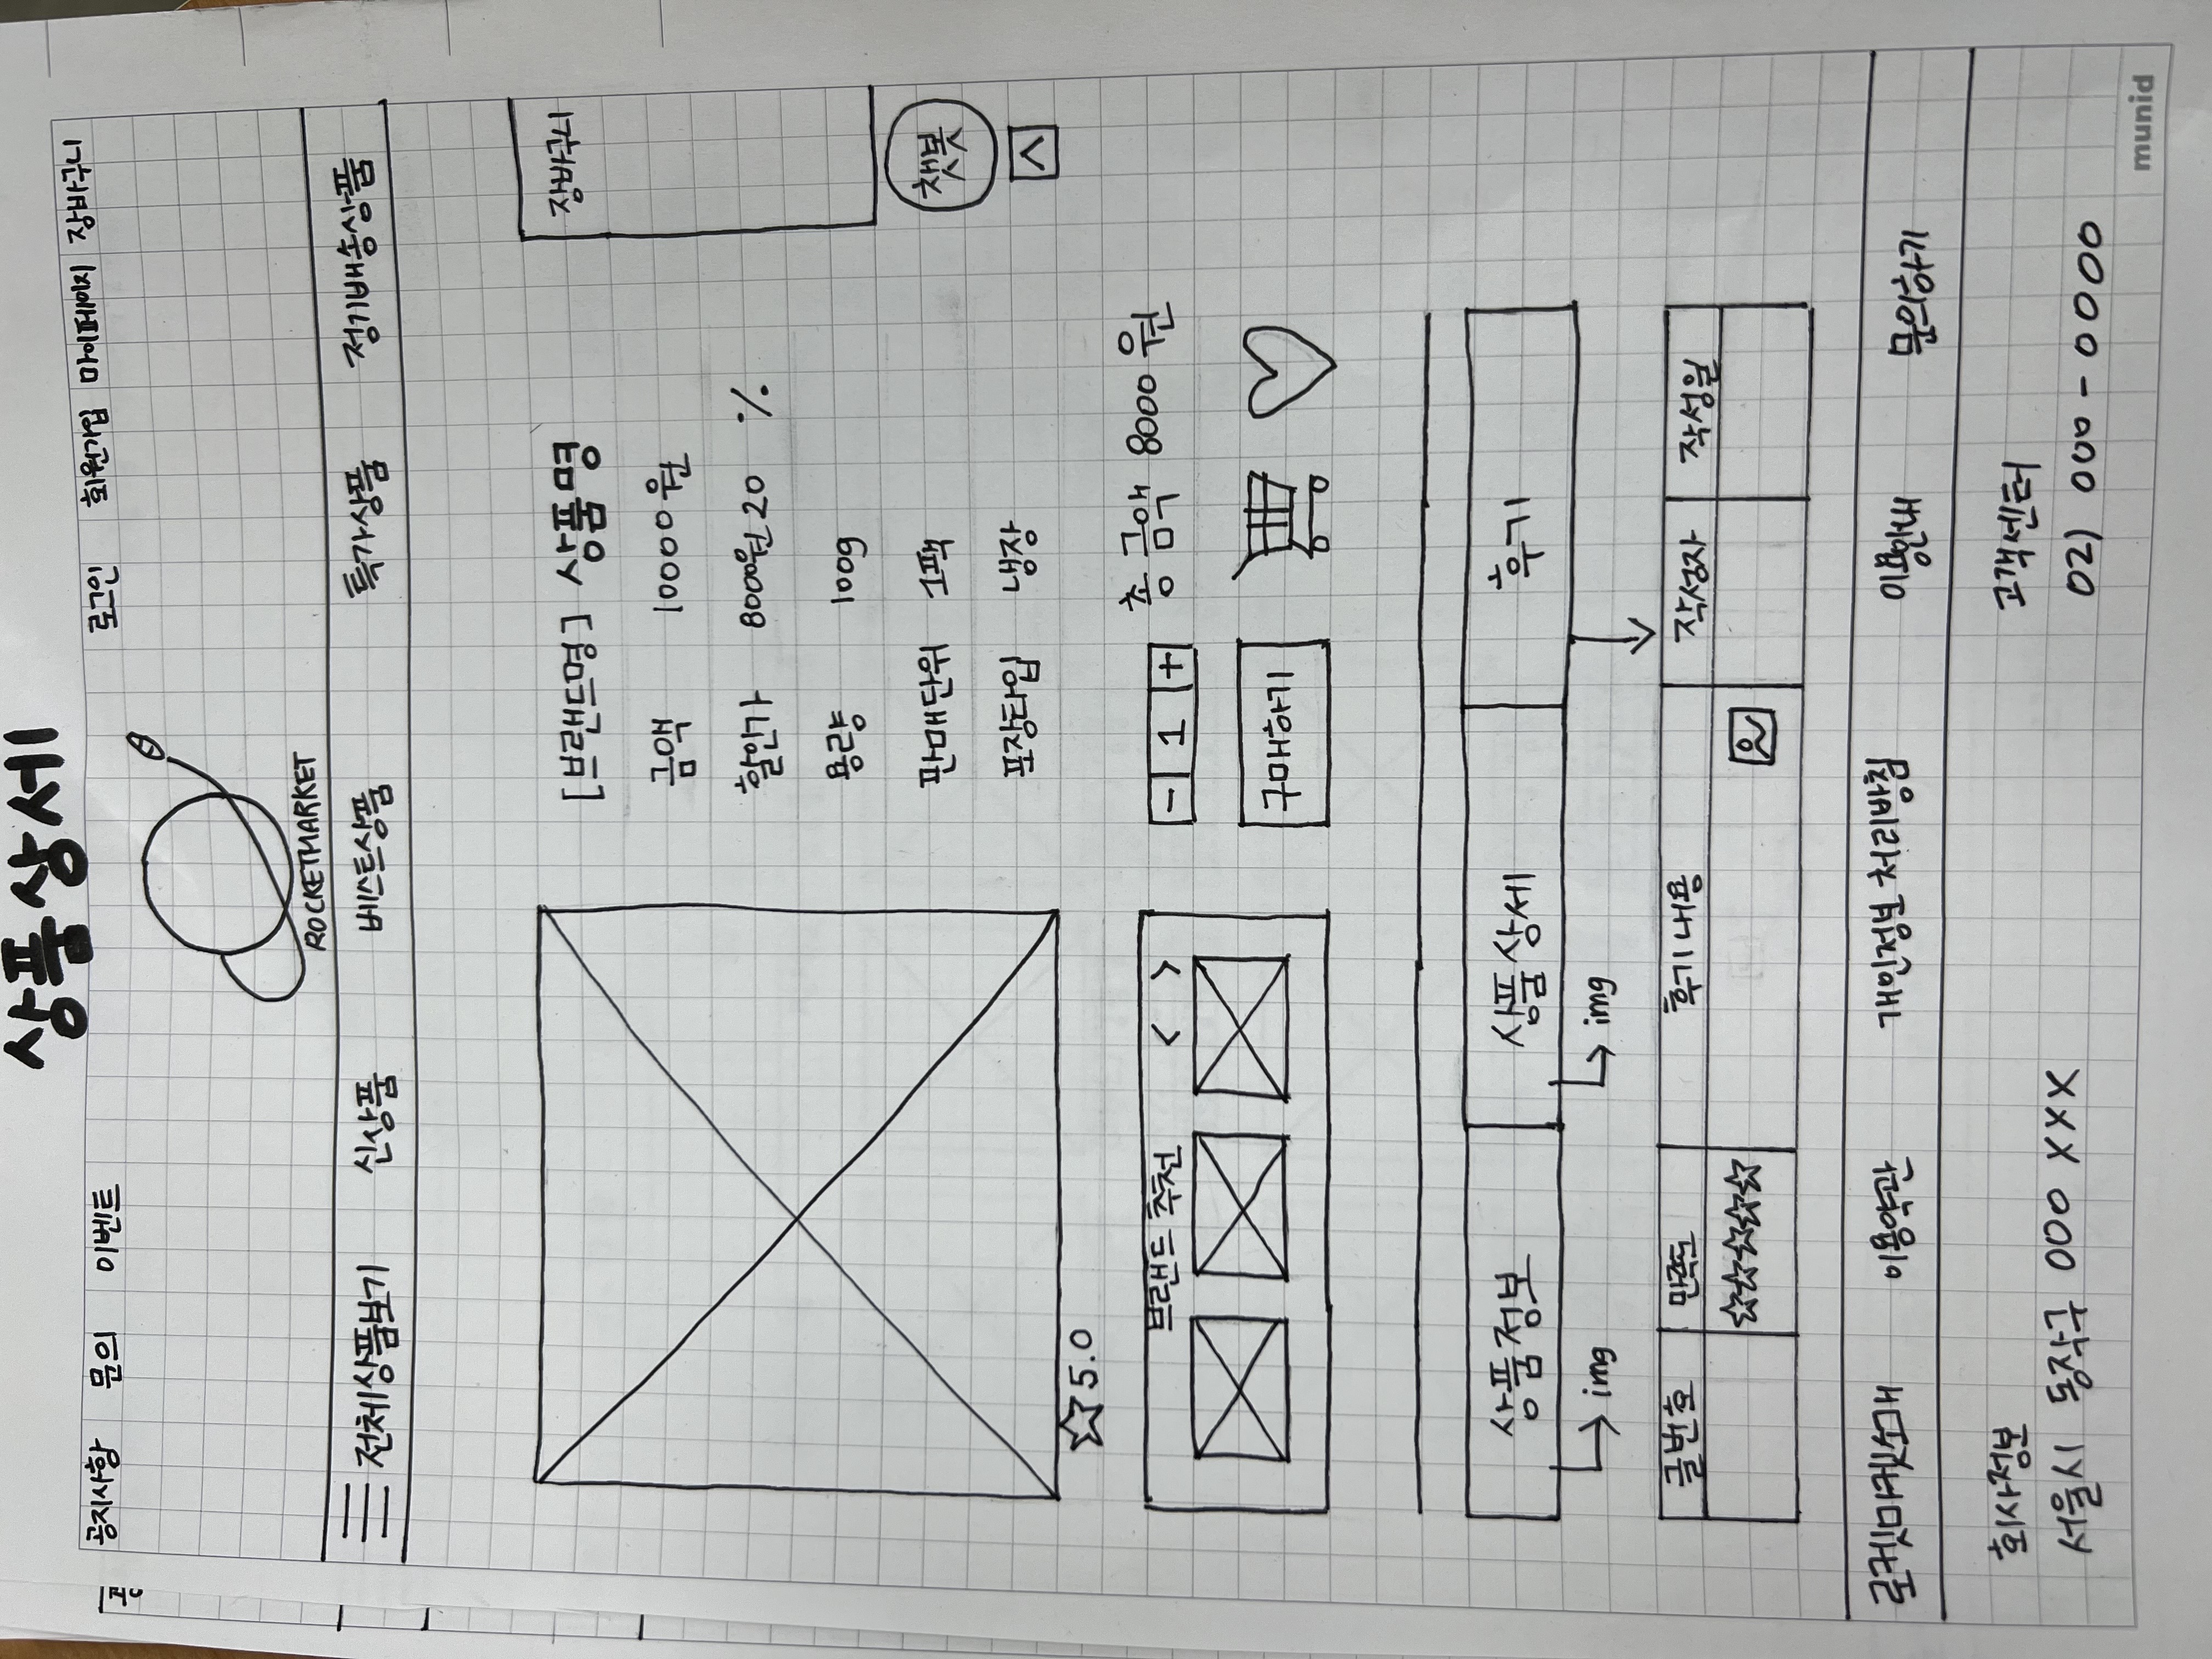 상품상세
공지사항 문의 이벤트 로그인 회원가입 마이페이지 장바구니
ROCKETMARKET
전체상품보기 신상품 베스트상품 특가상품 정기배송상품
[브랜드명] 상품명
금액 10000원
할인가 8000원 20 %
용량 100g
판매단위 1팩
포장타입 냉장
장바구니
챗봇
☆5.0
브랜드 추천 < >
- 1 + 총 금액 8000원
구매하기
상품정보 상품상세 후기
img img
글번호 만족도 후기내용 작성자 작성일
☆☆☆☆☆
로켓마켓소개 이용약관 개인정보 처리방침 이용안내 문의하기
회사정보 고객센터
서울시 동작구 000 XXX 02) 000-0000
munid